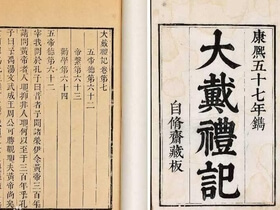 康熙五十七年鐫
大戴禮記
自脩齋藏板
大戴禮記卷第七
五帝德第六十二
帝繫第六十三
勸學第六十四
五帝德第六十二
宰我問於孔子曰昔者予聞諸榮伊令黃帝三百年請
問黃帝者人邪抑非人邪何以至於三百年乎孔
子曰予禹湯文武成王周公可勝觀邪夫黃帝尚矣